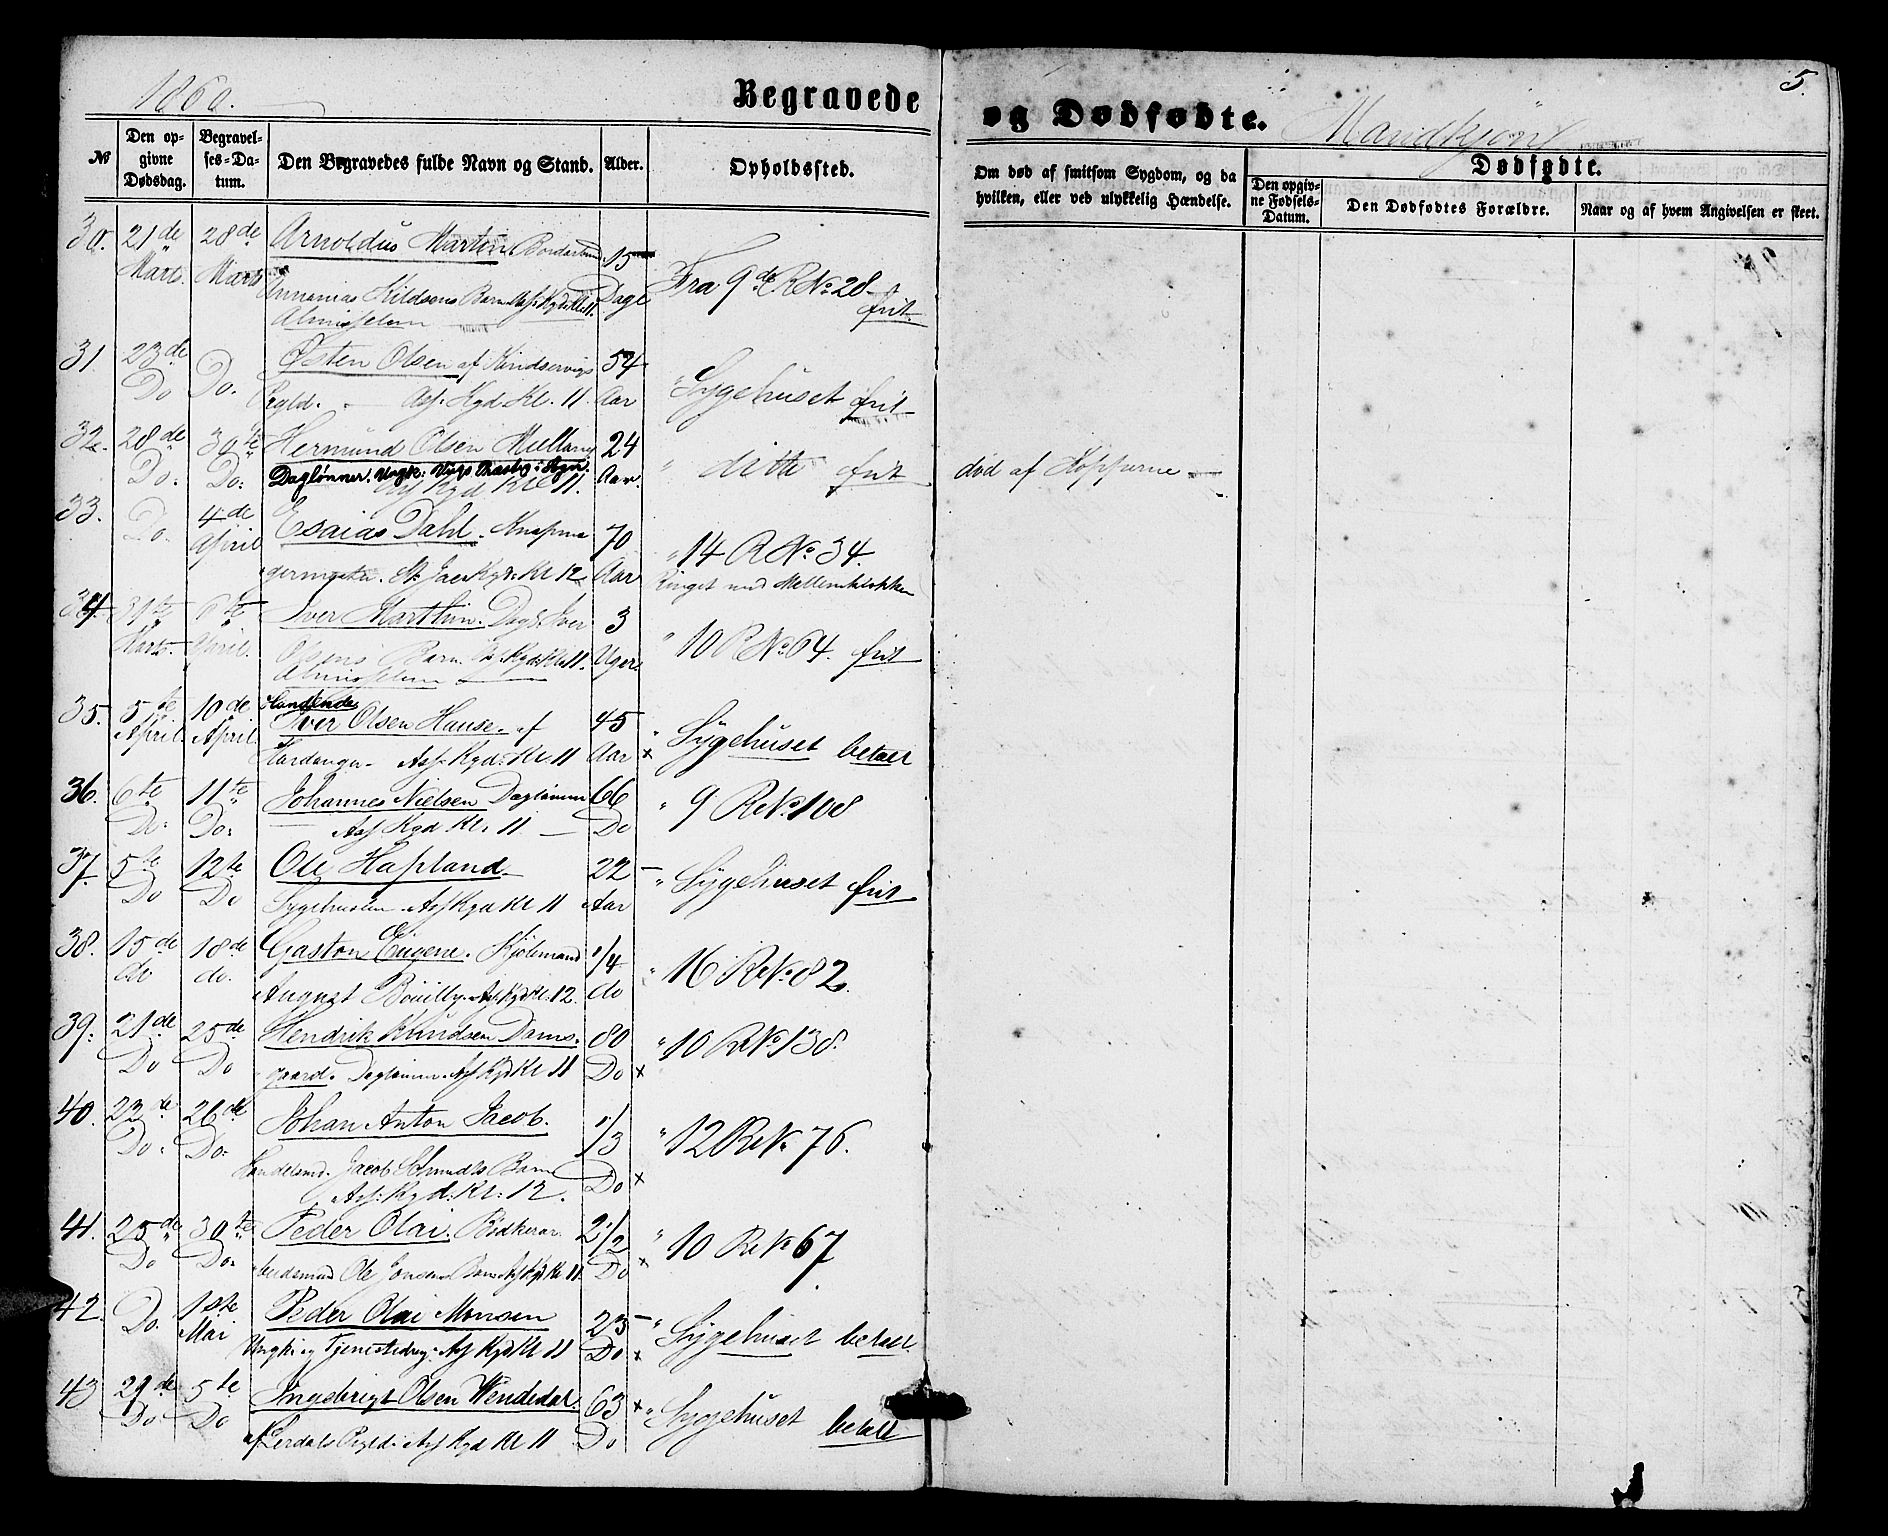 1860.
Begravede
og Dødfødte.
Mandkjøn
5.
No
Den opgivne Dødsdag.
Begravelses-Datum.
Den Begravedes fulde Navn og Stand.
Alder.
Opholdssted.
Om død af smitsom Sygdom, og da hvilken, eller ved ulykkelig Hændelse.
Dødfødte.
Den opgivne Fødsels-Datum.
Den Dødfødtes Forældre.
Naar og af hvem Angivelsen er skeet.
30. 21de 28de Arnoldus Martin. 15
Marts. Marts Barn Ass: Kgd: Kl: 11. Dage Fra 9de R No 28 frit.
Almisselem
31 23de Do. Østen Olsen af Kindservigs 54
Do Prgld. Ass: Kgd. Kl. 11. Aar " Sygehuset frit
32. 28de 30te Hermund Olsen 24
Do. Do: Daglønner. Aar. " ditto frit død af Kopperne
Ass Kgd Kl 11.
33. Do. 4de Esaias Dahl. Knapma- 70
April germester. Kgd: Kl 12 Aar " 14 R No 34.
Ringet med Mellemklokken
34. 31te 6te Iver Marthin. Iver 3
Marts. April. Olsens Barn Kgd: Kl: 11. Uger. " 10 R No 64. frit
Almisselem
35. 5te 10de Iver Olsen Hause. af 45
April April Hardanger Ass. Kgd: Kl. 11 Aar x " Sygehuset betalt
36. 6te 11te Johannes Nielsen Daglønner 66
Do: Do: Ass Kgd Kl: 11 Do " 9 R No 108
37. 5te 12te Ole Hapland 22
Do Do Sygehuslem. Ass Kgd Kl 11 Aar " Sygehuset frit
38. 15de 18de Gaston Eugene. 1/4
do do. August Ass. Kgd Kl: 12. do " 16 R No 82.
39. 21de 25de Hendrik Knudsen Dams- 80
Do Do gaard. Daglønner. Ass Kgd Kl 11 Do x " 10 R No 138.
40. 22de 26de Johan Anton Jacob. 1/3
Do. Do. Handelsmd. Jacob Schmidts Barn Do x " 12 R No 76.
Ass: Kgd: Kl: 12.
41. 25de 30te Peder Olai. Bødkerar- 2 1/2
Do Do. beidsmand Ole Barn Ass Kgd Kl 11. Do x " 10 R No 67
42. Do. 1ste Peder Olai Monsen 23
Mai Ungk: og Tjenestedreng. Ass Kgd Kl 11 Do x " Sygehuset betalt
43 29de 5te Ingebrigt Olsen Wendedal. 63
Do Do af Lerdals Prgld. Ass Kgd Kl 11 Do x " Sygehuset betalt